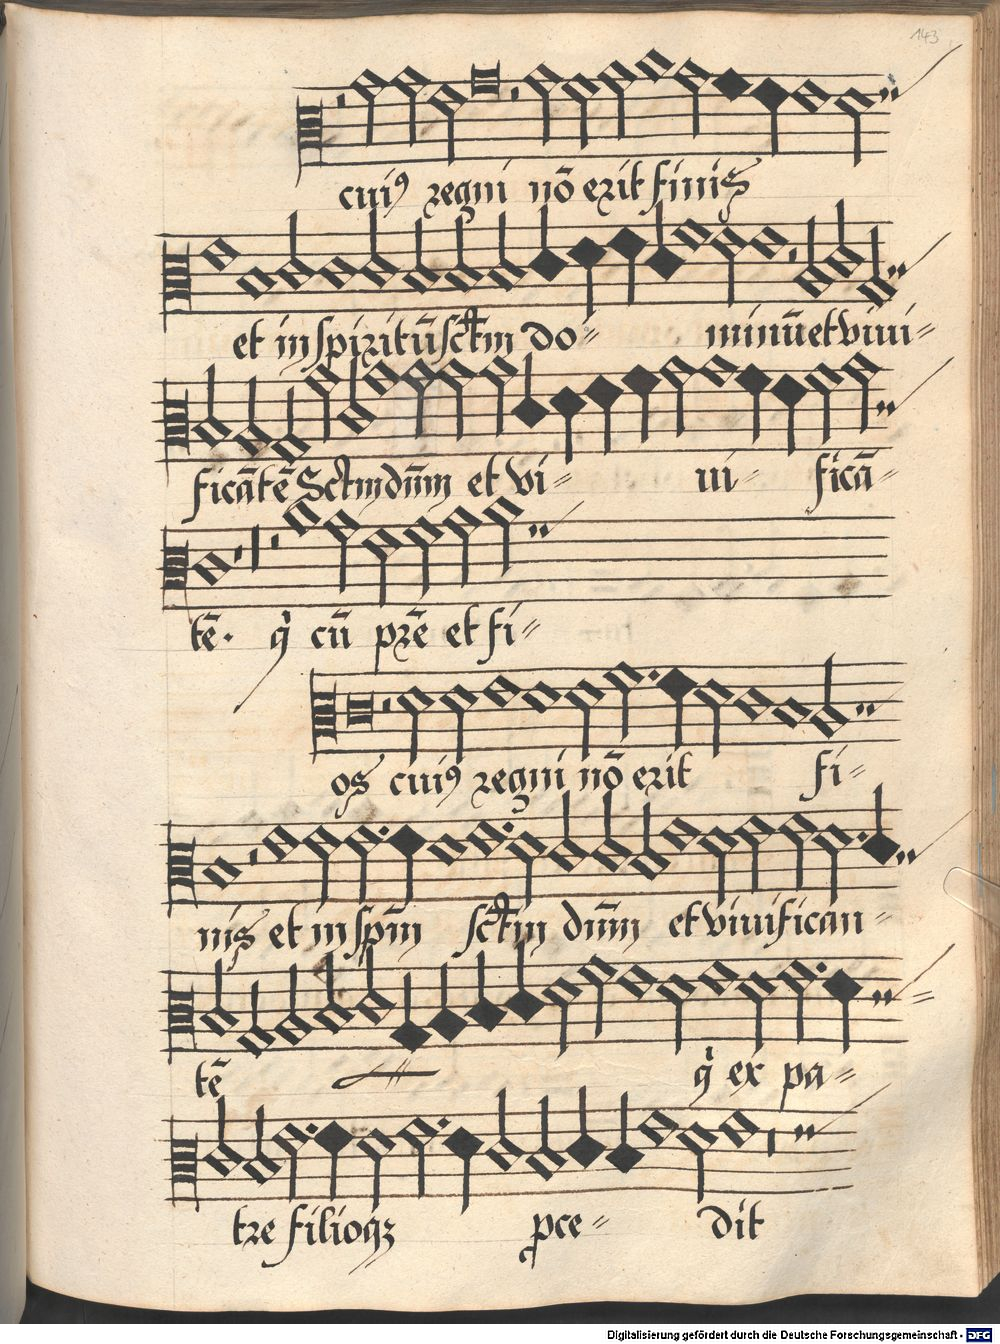 143
cui⁹ regni nō erit finis
et in spiritū sctm do⸗ minū et vivi⸗
ficātē Sctm dūm et vi⸗ ui⸗ ficā⸗
tē. q̇ cū prē et fi⸗
os cui⁹ regni nō erit fi⸗
nis et in spm̄ sctm dūm et vivifican⸗
tē q̇ ex pa⸗
tre filioqʒ ꝓce⸗ dit
Digitalisierung gefördert durch die Deutsche Forschungsgemeinschaft - DFG